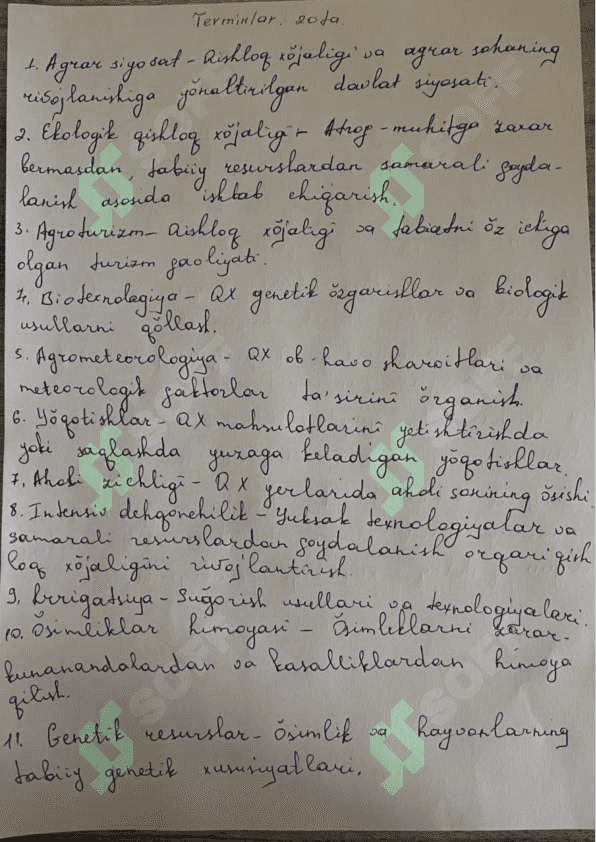 Terminlar. 20ta.
1. Agrar siyosat - Qishloq xŏjaligi va agrar sohaning
rivojlanishiga yŏnaltirilgan davlat siyosati.
2. Ekologik qishloq xŏjaligi - Atrof-muhitga zarar
bermasdan, tabiiy resurslardan samarali foyda-
lanish asosida ishlab chiqarish.
3. Agroturizm - Qishloq xŏjaligi va tabiatni ŏz ichiga
olgan turizm faoliyati.
4. Biotexnologiya - QX genetik ŏzgarishlar va biologik
usullarni qŏllash.
5. Agrometeorologiya - QX ob-havo sharoitlari va
meteorologik faktorlar ta'sirini ŏrganish.
6. Yŏqotishlar - QX mahsulotlarini yetishtirishda
yoki saqlashda yuzaga keladigan yŏqotishlar.
7. Aholi zichligi - QX yerlarida aholi sonining ŏsishi.
8. Intensiv dehqonchilik - Yuksak texnologiyalar va
samarali resurslardan foydalanish orqari qish
loq xŏjaligini rivoj'lantirish.
9. Irrigatsiya - Suğorish usullari va texnologiyalari.
10. Ŏsimliklar himoyasi - Ŏsimliklarni zarar-
kunanandalardan va kasalliklardan himoya
qilish.
11. Genetik resurslar - Ŏsimlik va hayvonlarning
tabiiy genetik xususiyatlari.
SOFF
SOFF
SOFF
SOFF
SOFF
SOFF